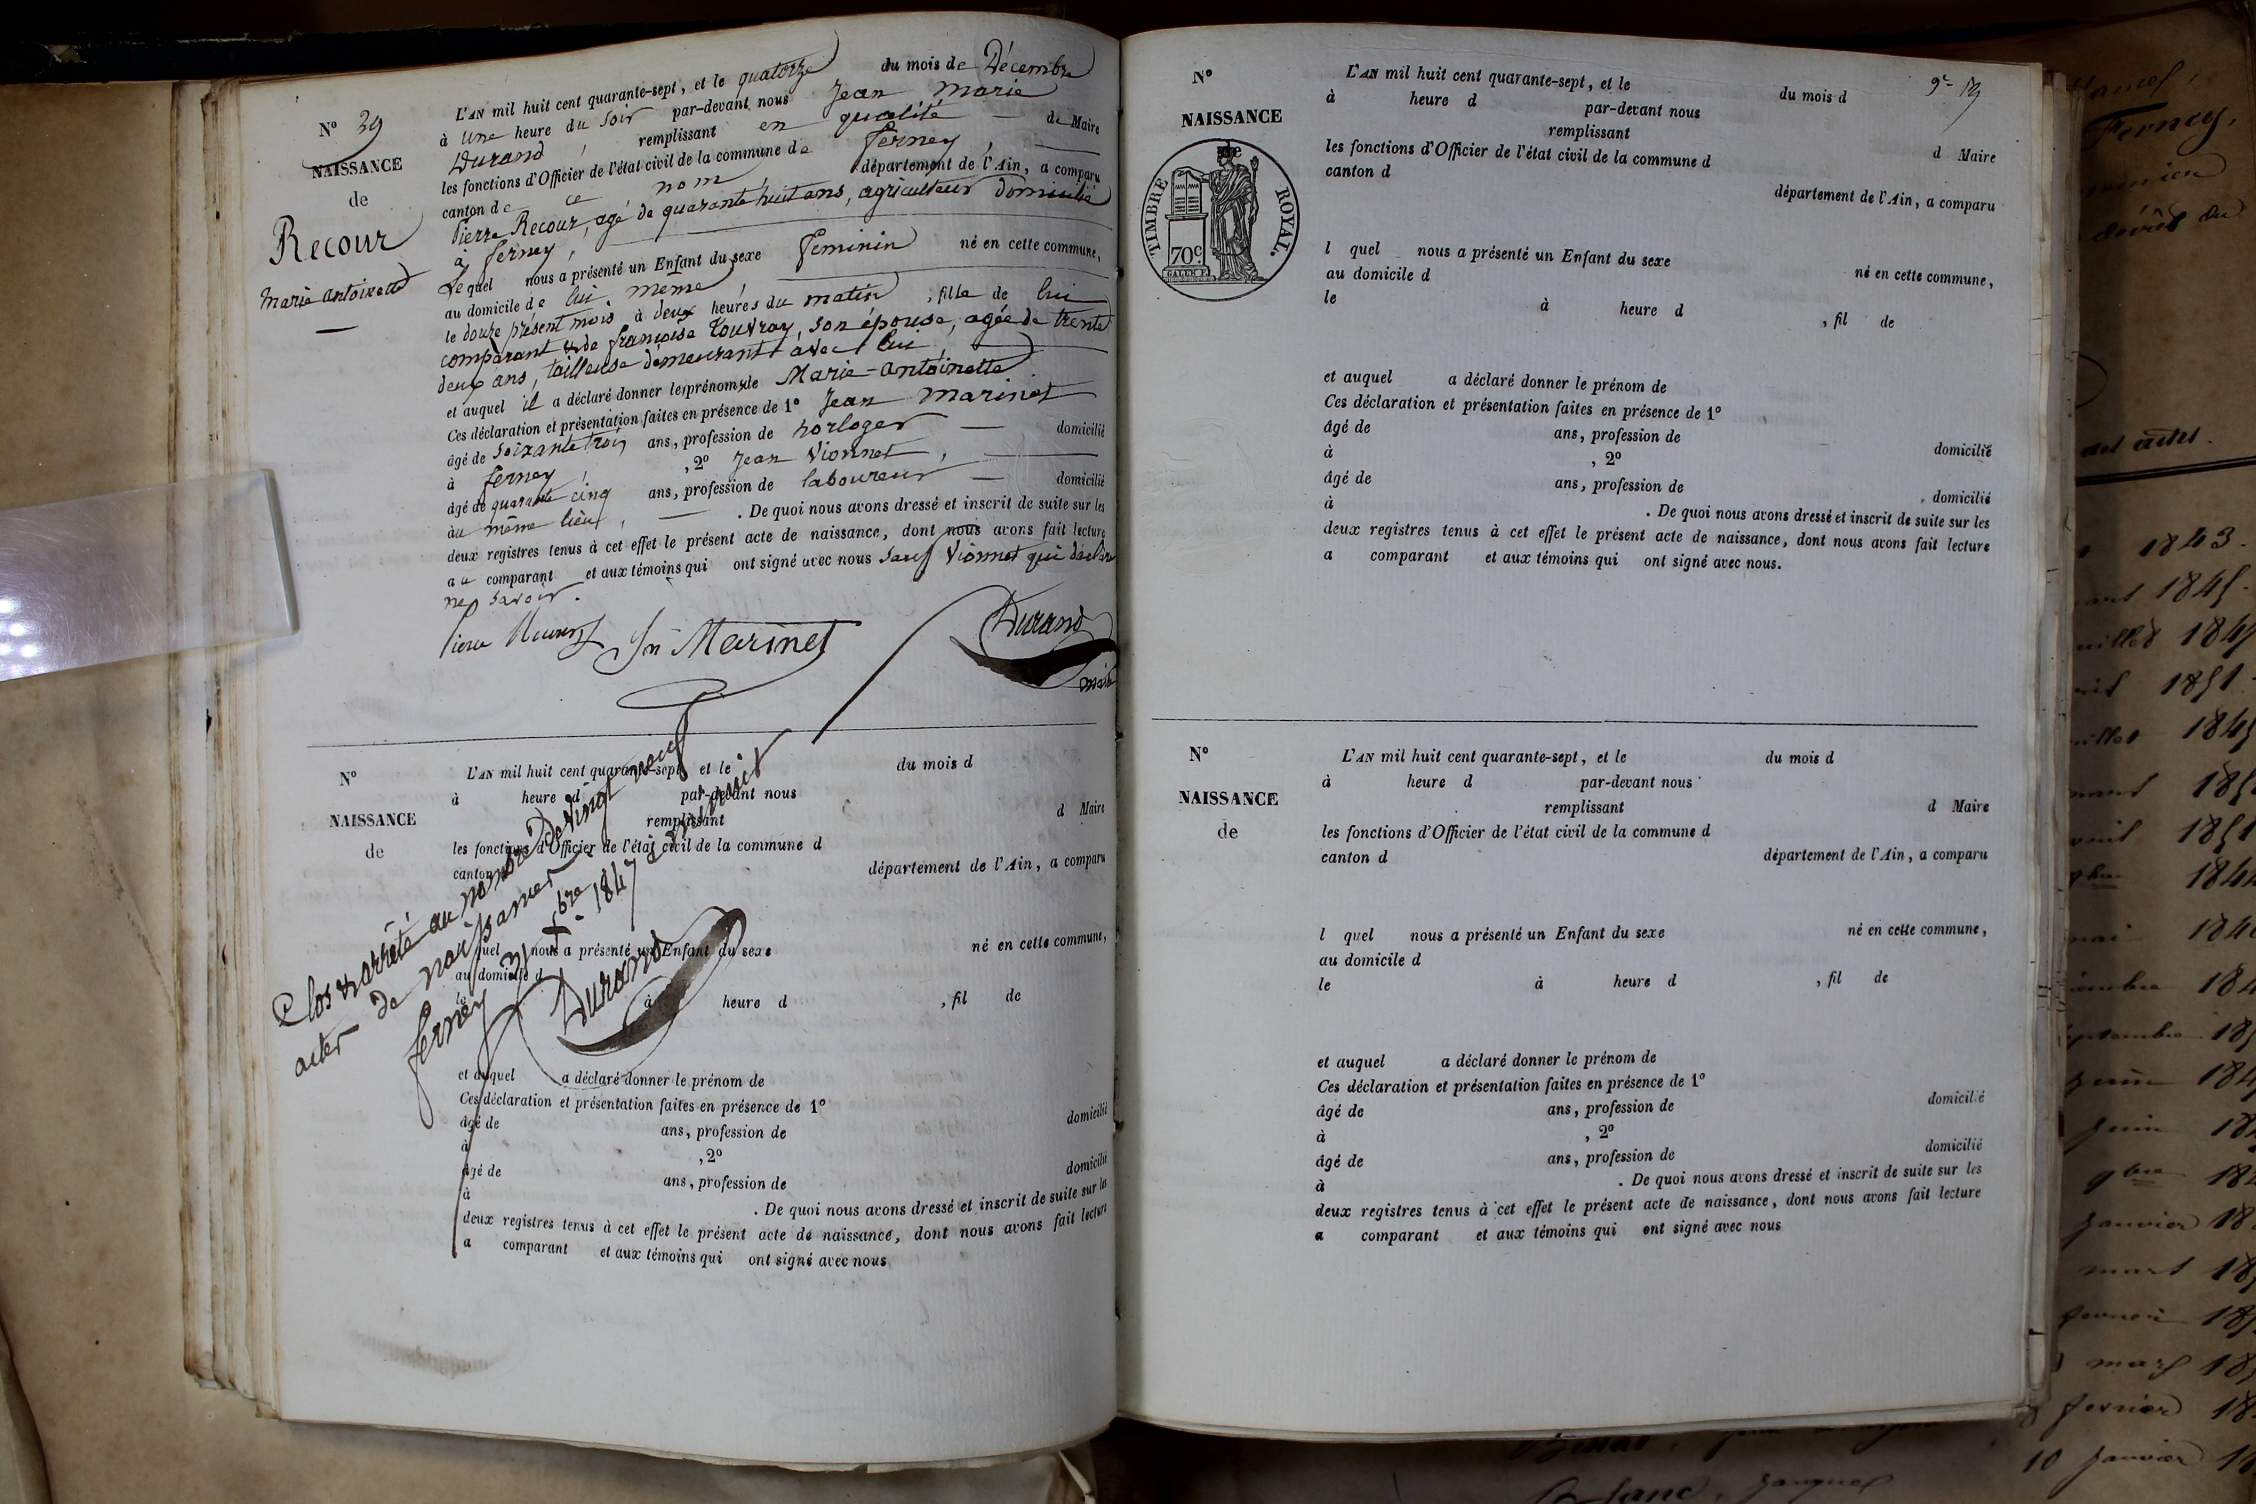 N° 29
NAISSANCE
de
Recour
Marie Antoinette
L'AN mil huit cent quarante-sept, et le quatorze du mois de Décembre
à une heure du Soir par-devant nous Jean Marie
Durand, remplissant en qualité de Maire
les fonctions d'Officier de l'état civil de la commune de ferney,
canton de ce nom, département de l'Ain, a comparu
Pierre Recour, agé de quarante huit ans, agriculteur domicilié
à ferney,
Lequel nous a présenté un Enfant du sexe feminin né en cette commune,
au domicile de lui même
le douze présent mois à deux heures du matin, fille de lui
comparant & de françoise Touvray, son épouse, agée de trente
deux ans, tailleuse demeurant avec lui
et auquel il a déclaré donner les prénoms de Marie-Antoinette
Ces déclaration et présentation faites en présence de 1° Jean Marinet
âgé de soixante trois ans, profession de horloger domicilié
à ferney, 2° Jean Vionnet,
âgé de quarante cinq ans, profession de laboureur domicilié
au même lieu, . De quoi nous avons dressé et inscrit de suite sur les
deux registres tenus à cet effet le présent acte de naissance, dont nous avons fait lecture
au comparant et aux témoins qui ont signé avec nous sauf Vionnet qui déclare
ne savoir.
Pierre Recour Jn Marinet Durand
maire
N°
NAISSANCE
de
L'AN mil huit cent quarante-sept, et le du mois d
à heure d par-devant nous
remplissant d Maire
les fonctions d'Officier de l'état civil de la commune d
canton d département de l'Ain, a comparu
l quel nous a présenté un Enfant du sexe né en cette commune,
au domicile d
le à heure d , fil de
et auquel a déclaré donner le prénom de
Ces déclaration et présentation faites en présence de 1°
âgé de ans, profession de domicilié
à , 2°
âgé de ans, profession de domicilié
à . De quoi nous avons dressé et inscrit de suite sur les
deux registres tenus à cet effet le présent acte de naissance, dont nous avons fait lecture
a comparant et aux témoins qui ont signé avec nous
Clos & arrêté au nombre de Vingt neuf
actes de naissance
ferney 31 Xbre 1847 à minuit
Durand
N°
NAISSANCE
de
TIMBRE ROYAL.
70c.
L'AN mil huit cent quarante-sept, et le du mois d
à heure d par-devant nous
remplissant d Maire
les fonctions d'Officier de l'état civil de la commune d
canton d département de l'Ain, a comparu
l quel nous a présenté un Enfant du sexe né en cette commune,
au domicile d
le à heure d , fil de
et auquel a déclaré donner le prénom de
Ces déclaration et présentation faites en présence de 1°
âgé de ans, profession de domicilié
à , 2°
âgé de ans, profession de domicilié
à . De quoi nous avons dressé et inscrit de suite sur les
deux registres tenus à cet effet le présent acte de naissance, dont nous avons fait lecture
a comparant et aux témoins qui ont signé avec nous.
N°
NAISSANCE
de
L'AN mil huit cent quarante-sept, et le du mois d
à heure d par-devant nous
remplissant d Maire
les fonctions d'Officier de l'état civil de la commune d
canton d département de l'Ain, a comparu
l quel nous a présenté un Enfant du sexe né en cette commune,
au domicile d
le à heure d , fil de
et auquel a déclaré donner le prénom de
Ces déclaration et présentation faites en présence de 1°
âgé de ans, profession de domicilié
à , 2°
âgé de ans, profession de domicilié
à . De quoi nous avons dressé et inscrit de suite sur les
deux registres tenus à cet effet le présent acte de naissance, dont nous avons fait lecture
a comparant et aux témoins qui ont signé avec nous
Ferney,
1843.
1845.
1851
janvier
mars
fevrier
10 janvier